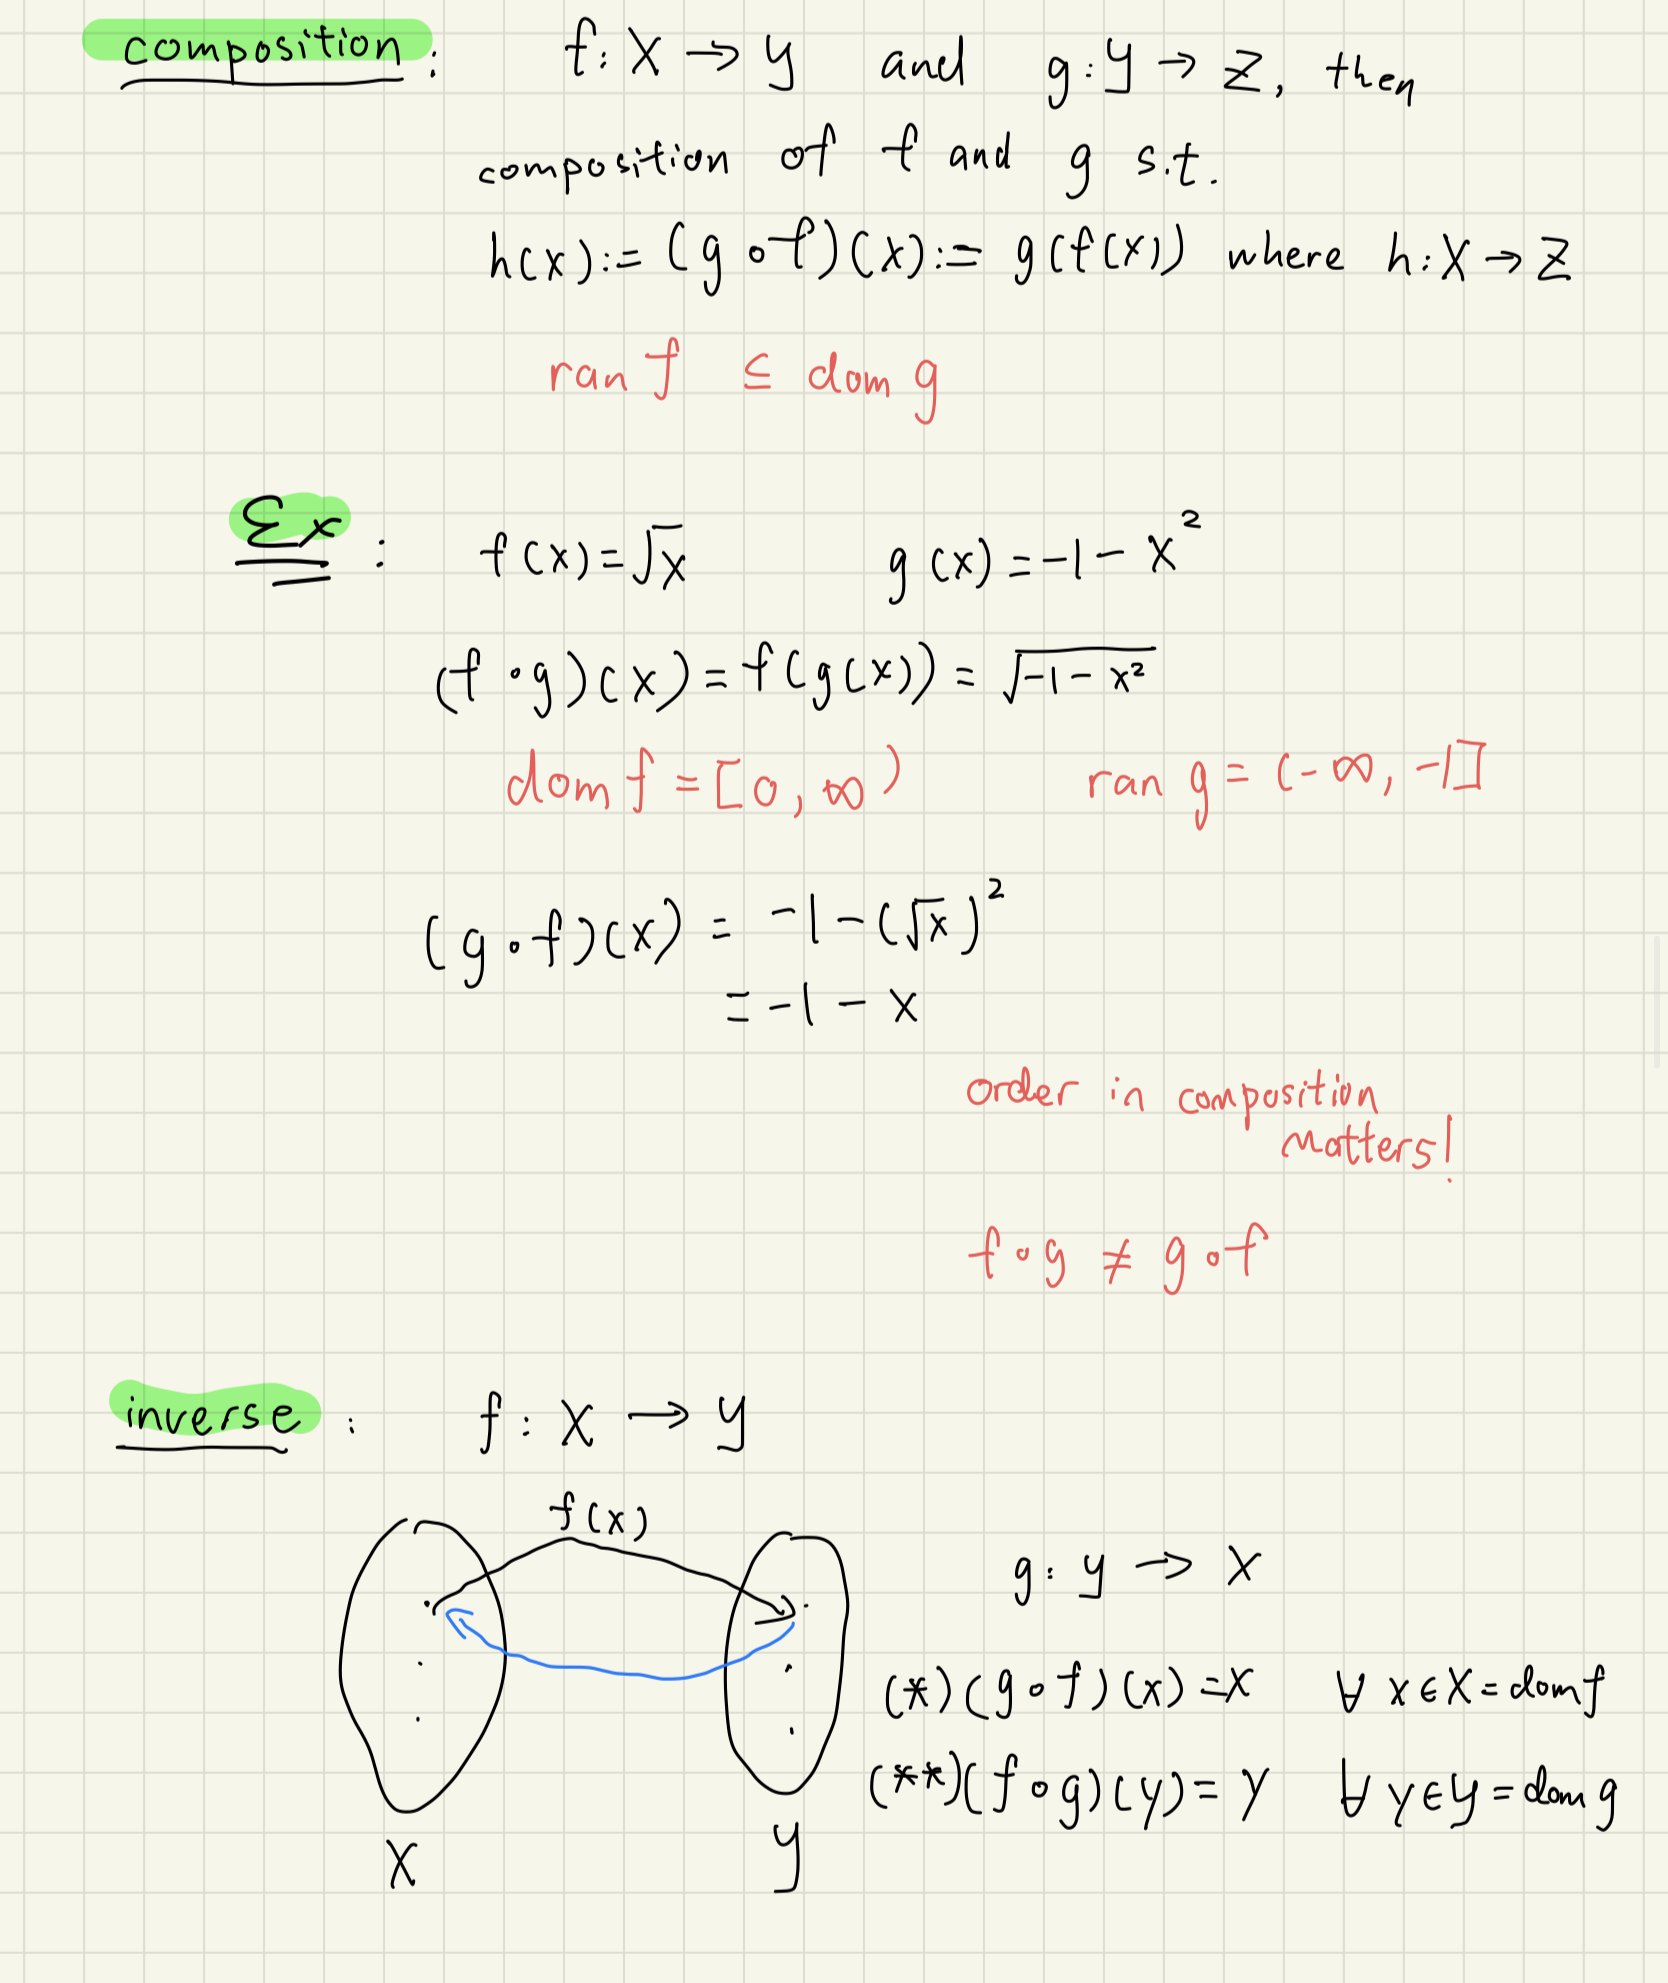 composition : f: X → Y and g: Y → Z, then
composition of f and g s.t.
h(x) := (g ∘ f)(x) := g(f(x)) where h: X → Z
ran f ⊆ dom g
Ex : f(x) = √x g(x) = -1 - x²
(f ∘ g)(x) = f(g(x)) = √(-1 - x²)
dom f = [0, ∞) ran g = (-∞, -1]
(g ∘ f)(x) = -1 - (√x)²
= -1 - x
order in composition
matters!
f ∘ g ≠ g ∘ f
inverse : f: X → Y
f(x)
g: Y → X
(*) (g ∘ f)(x) = x ∀ x ∈ X = dom f
(**) (f ∘ g)(y) = y ∀ y ∈ Y = dom g
X Y